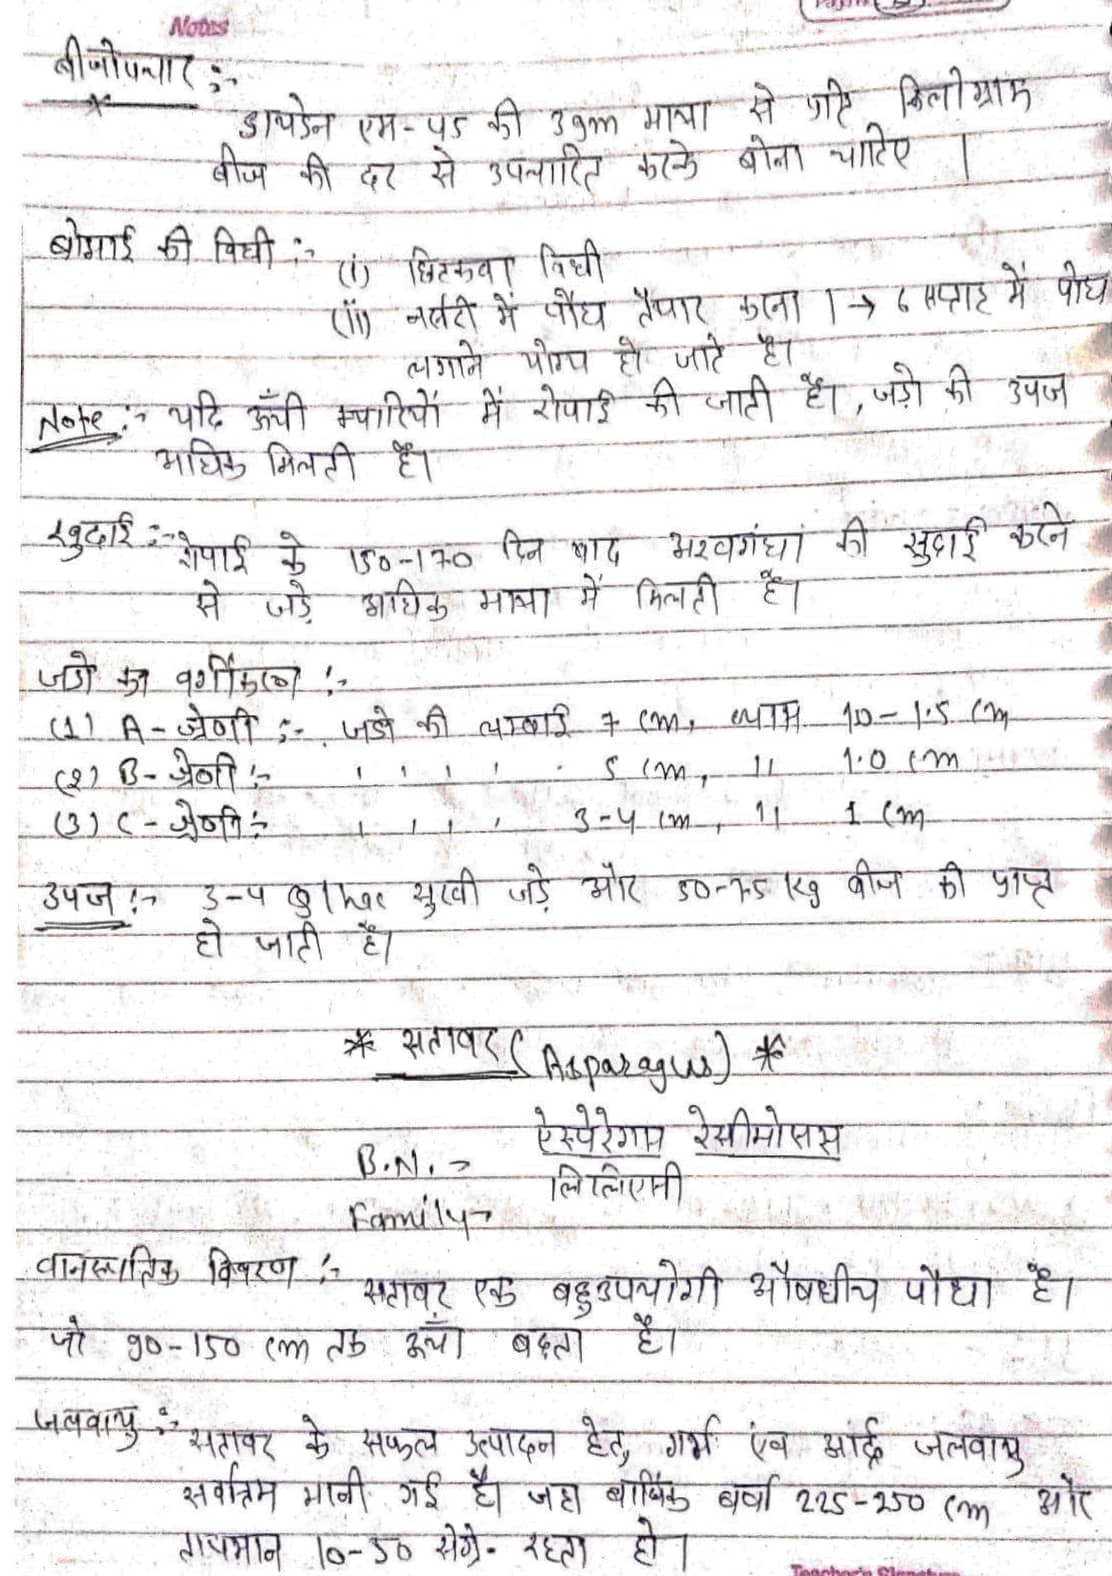 Notes
बीजोपचार :-
डायथेन एम-45 की 3gm मात्रा से प्रति किलोग्राम
बीज की दर से उपचारित करके बोना चाहिए ।
बोआई की विधी :- (i) छिटकवा विधी
(ii) नर्सरी में पौध तैयार करना । → 6 सप्ताह में पौध
लगाने योग्य हो जाते है।
Note :- यदि ऊँची क्यारियों में रोपाई की जाती है।, जड़ो की उपज
अधिक मिलती है।
खुदाई :- रोपाई के 150-170 दिन बाद अश्वगंधा की खुदाई करने
से जड़े अधिक मात्रा में मिलती है।
जडो का वर्गीकरण :-
(1) A-श्रेणी :- जडो की लम्बाई 7 cm, व्यास 1.0-1.5 cm
(2) B-श्रेणी :- , , , , . 5 cm, 11 1.0 cm
(3) C-श्रेणी :- , , , , 3-4 cm, 11 1 cm
उपज :- 3-4 q/hac सुखी जड़े और 50-75 kg बीज की प्राप्त
हो जाती है।
* सतावर (Asparagus) *
B.N. → ऐस्पेरेगास रेसीमोसस
Family → लिलिएसी
वानस्पतिक विवरण :- सतावर एक बहुउपयोगी औषधीय पौधा है।
जो 90-150 cm तक ऊँचा बढता है।
जलवायु :- सतावर के सफल उत्पादन हेतु गर्म एंव आर्द्र जलवायु
सर्वोत्तम मानी गई है। जहा वार्षिक वर्षा 225-250 cm और
तापमान 10-50 सेग्रे. रहता हो ।